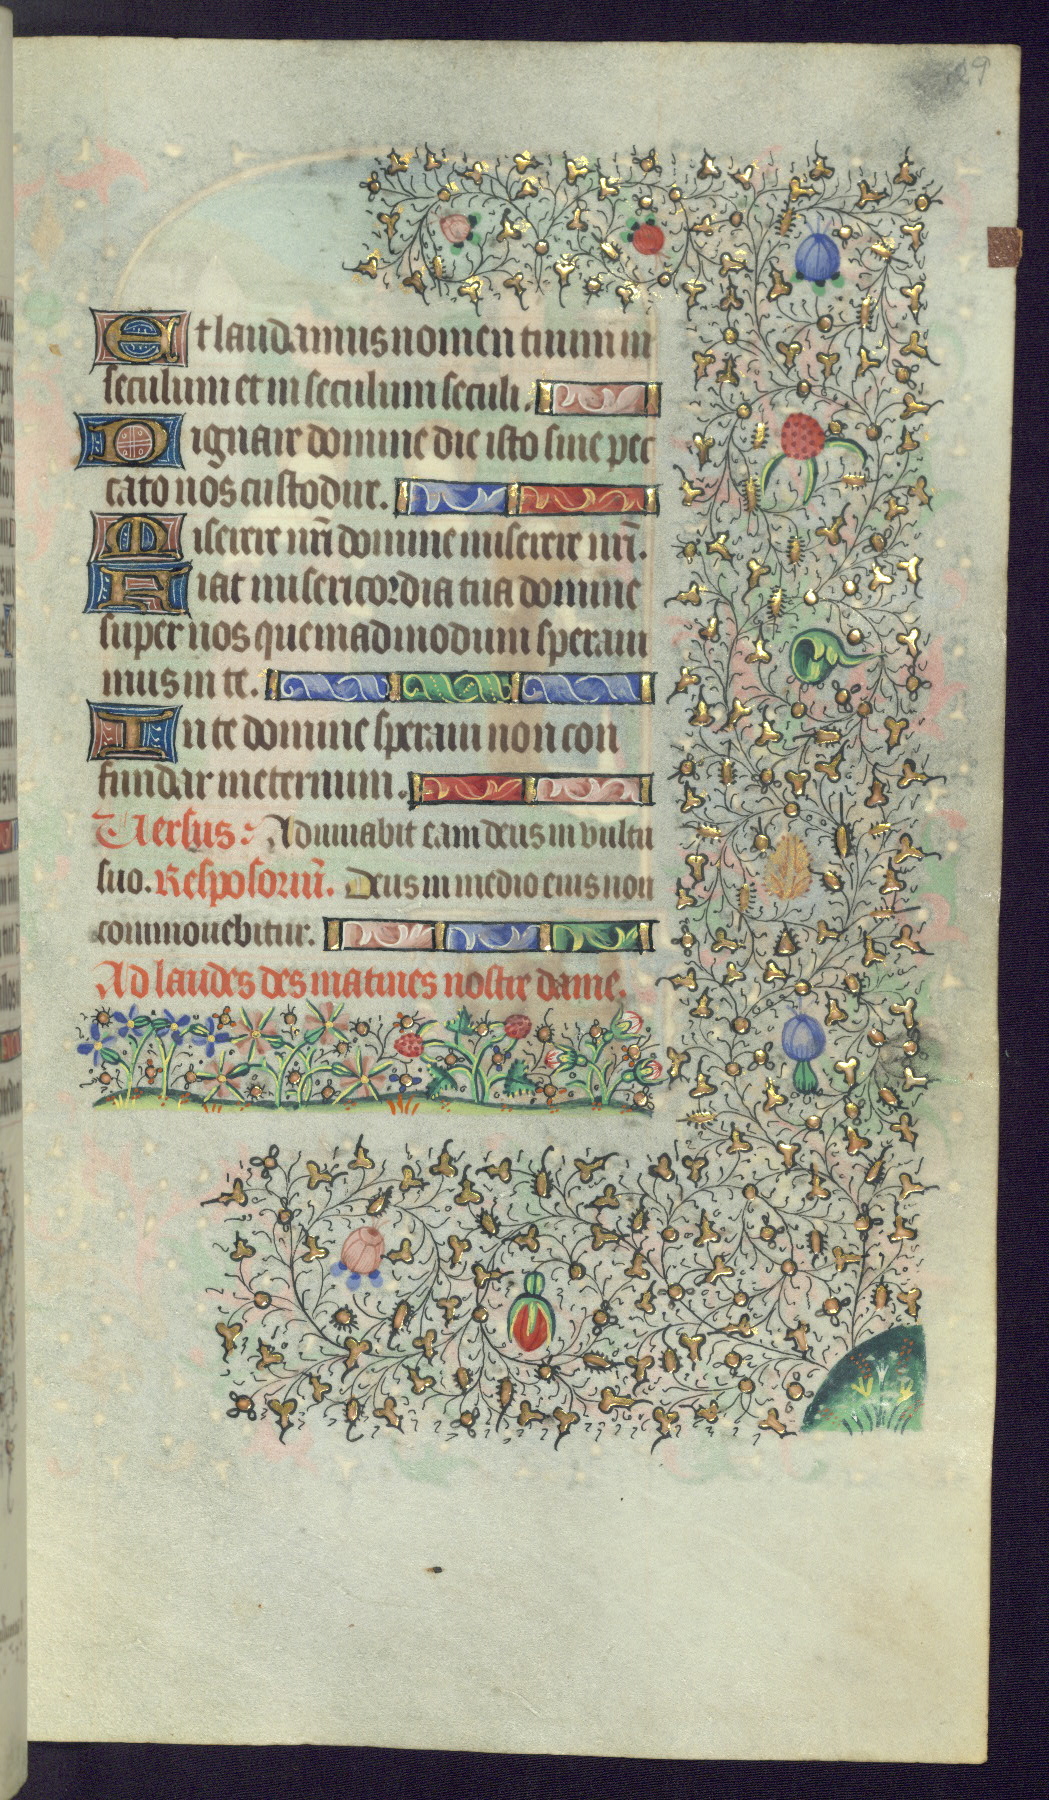 29
Et laudamus nomen tuum in
seculum et in seculum seculi.
Dignare domine die isto sine pec
cato nos custodire.
Miserere nr̄i domine miserere nr̄i.
Fiat misericordia tua domine
super nos quemadmodum speraui
mus in te.
In te domine speraui non con
fundar in eternum.
Uersus. Adiuuabit eam deus in vultu
suo. Resposoriū. Deus in medio eius non
commouebitur.
Ad laudes des matines nostre dame.